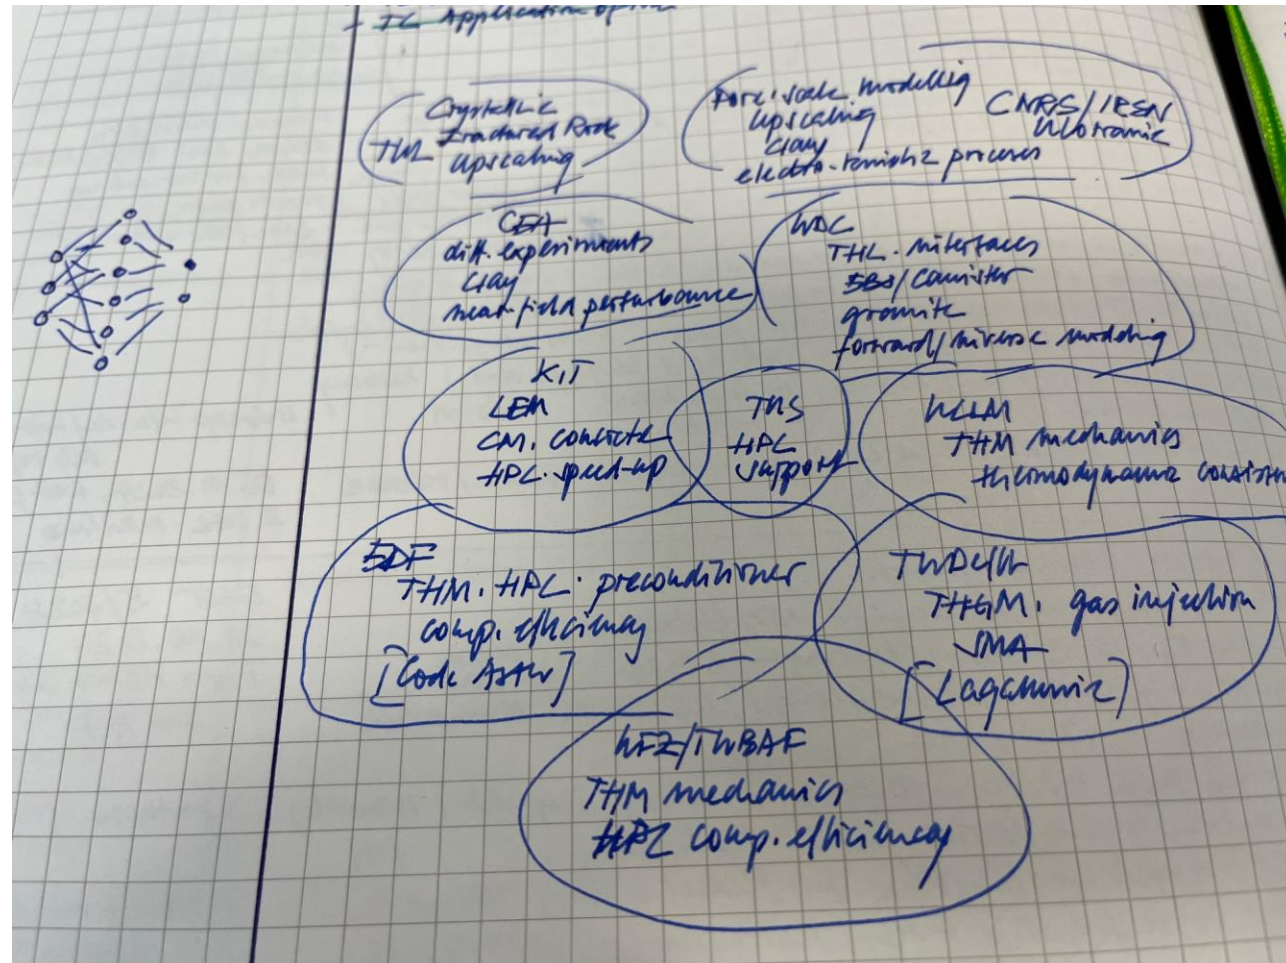 - IC Application
Crystalline
Fractured Rock
upscaling
Pore-scale modelling
upscaling
clay
CNRS/IRSN
electro-kinetic processes
CEA
diff. experiments
clay
near-field perturbance
UDC
interfaces
EBS/canister
granite
forward/inverse modeling
KIT
HPC. speed-up
HPC
support
THM mechanics
thermodynamic
EDF
THM. HPC. preconditioner
comp. efficiency
[Code Aster]
THGM. gas injection
[Lagamine]
UFZ/TUBAF
THM mechanics
HPC comp. efficiency